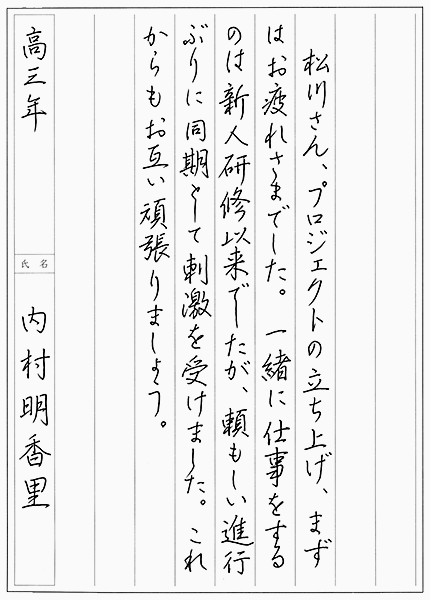 松川さん、プロジェクトの立ち上げ、まず
はお疲れさまでした。一緒に仕事をする
のは新人研修以来でしたが、頼もしい進行
ぶりに同期として刺激を受けました。これ
からもお互い頑張りましょう。
高三年
氏名
内村明香里